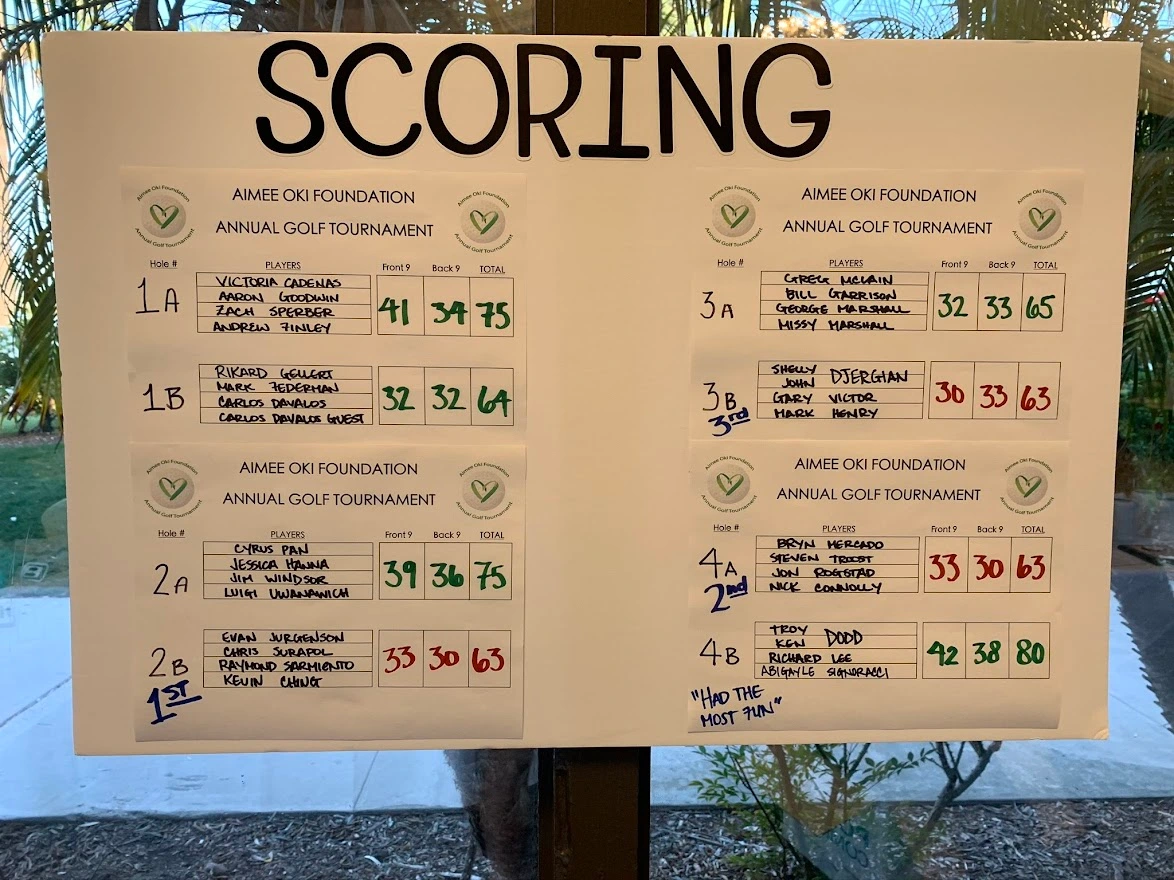 SCORING
Aimee Oki Foundation
Annual Golf Tournament
AIMEE OKI FOUNDATION
ANNUAL GOLF TOURNAMENT
Aimee Oki Foundation
Annual Golf Tournament
Hole # PLAYERS Front 9 Back 9 TOTAL
1A
VICTORIA CADENAS
AARON GOODWIN
ZACH SPERBER
ANDREW FINLEY
41 34 75
1B
RIKARD GELLERT
MARK FEDERMAN
CARLOS DAVALOS
CARLOS DAVALOS GUEST
32 32 64
Aimee Oki Foundation
Annual Golf Tournament
AIMEE OKI FOUNDATION
ANNUAL GOLF TOURNAMENT
Aimee Oki Foundation
Annual Golf Tournament
Hole # PLAYERS Front 9 Back 9 TOTAL
2A
CYRUS PAN
JESSICA HANNA
JIM WINDSOR
LUIGI UWANAWICH
39 36 75
2B
1ST
EVAN JURGENSON
CHRIS SURAPOL
RAYMOND SARMIENTO
KEVIN CHING
33 30 63
Aimee Oki Foundation
Annual Golf Tournament
AIMEE OKI FOUNDATION
ANNUAL GOLF TOURNAMENT
Aimee Oki Foundation
Annual Golf Tournament
Hole # PLAYERS Front 9 Back 9 TOTAL
3A
GREG MCLAIN
BILL GARRISON
GEORGE MARSHALL
MISSY MARSHALL
32 33 65
3B
3rd
SHELLY
JOHN DJERGIAN
GARY VICTOR
MARK HENRY
30 33 63
Aimee Oki Foundation
Annual Golf Tournament
AIMEE OKI FOUNDATION
ANNUAL GOLF TOURNAMENT
Aimee Oki Foundation
Annual Golf Tournament
Hole # PLAYERS Front 9 Back 9 TOTAL
4A
2nd
BRYN MERCADO
STEVEN TROOST
JON ROGSTAD
NICK CONNOLLY
33 30 63
4B
TROY
KEN DODD
RICHARD LEE
ABIGAYLE SIGNORACCI
42 38 80
"HAD THE
MOST FUN"